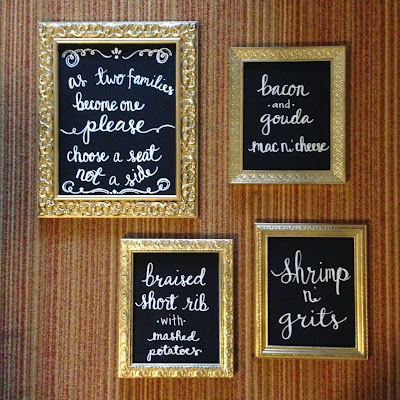 as two families
become one
please
choose a seat
not a side
bacon
·and·
gouda
mac n' cheese
braised
short rib
·with·
mashed
potatoes
shrimp
n'
grits